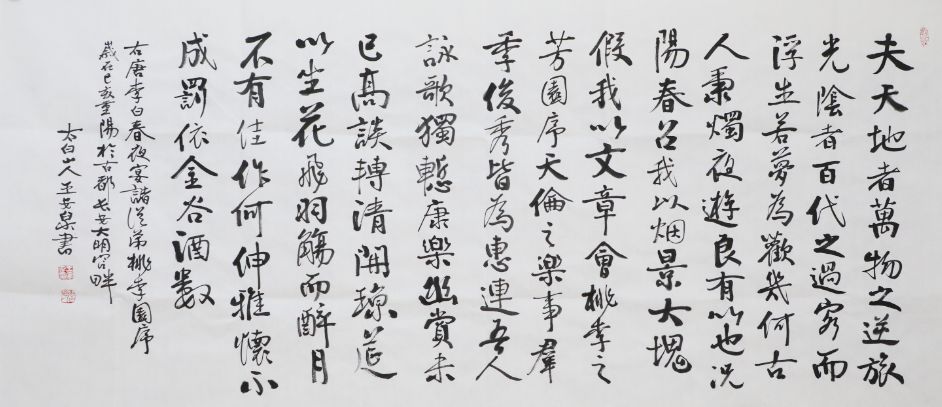 夫天地者萬物之逆旅
光陰者百代之過客而
浮生若夢為歡幾何古
人秉燭夜遊良有以也況
陽春召我以烟景大塊
假我以文章會桃李之
芳園序天倫之樂事羣
季俊秀皆為惠連吾人
詠歌獨慙康樂幽賞未
已高談轉清開瓊筵
以坐花飛羽觴而醉月
不有佳作何伸雅懷不
成罰依金谷酒數
右唐李白春夜宴諸從弟桃李園序
歲在己亥重陽於古都長安大明宮畔
太白山人王安泉書